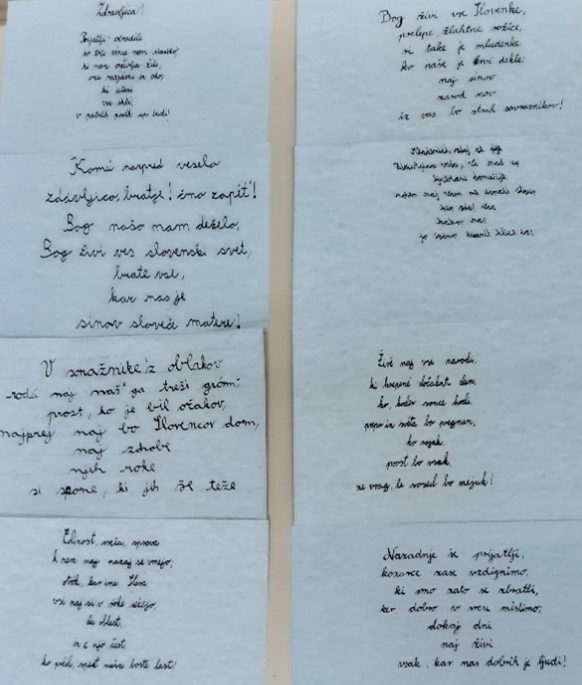 Zdravljica!
Prijatlji! obrodile
so trte vince nam sladko,
ki nam oživlja žile,
srce razjasni in oko,
ki utopi
vse skrbi,
v potrtih prsih up budi!
Komu narpred veselo
zdravljico, bratje! čmo zapet'!
Bog našo nam deželo,
Bog živi ves slovenski svet,
brate vse,
kar nas je
sinov sloveče matere!
V sovražnike 'z oblakov
rodú naj naš'ga treši gróm;
prost, ko je bil očakov,
naprej naj bo Slovencov dom;
naj zdrobé
njih roké
si spone, ki jih še težé
Edinost, sreča, sprava
k nam naj nazaj se vrnejo;
otrók, kar ima Slava,
vsi naj si v róke sežejo,
de oblast
in z njo čast,
ko préd, spet naša boste last!
Bog živi vse Slovenke,
prelepe, žlahtne rožice;
ni take je mladenke,
ko naše je krvi dekle;
naj sinov
zarod nov
iz vas bo strah sovražnikov!
Živé naj vsi narodi,
ki hrepené dočakat' dan,
ko, koder sonce hodi,
prepir iz svéta bo pregnan,
ko rojak
prost bo vsak,
ne vrag, le sosed bo mejak!
Nazadnje še, prijatlji,
kozarce zase vzdignimo,
ki smo zato se zbratli,
ker dobro v srcu mislimo;
dokaj dni
naj živí
vsak, kar nas dobrih je ljudi!